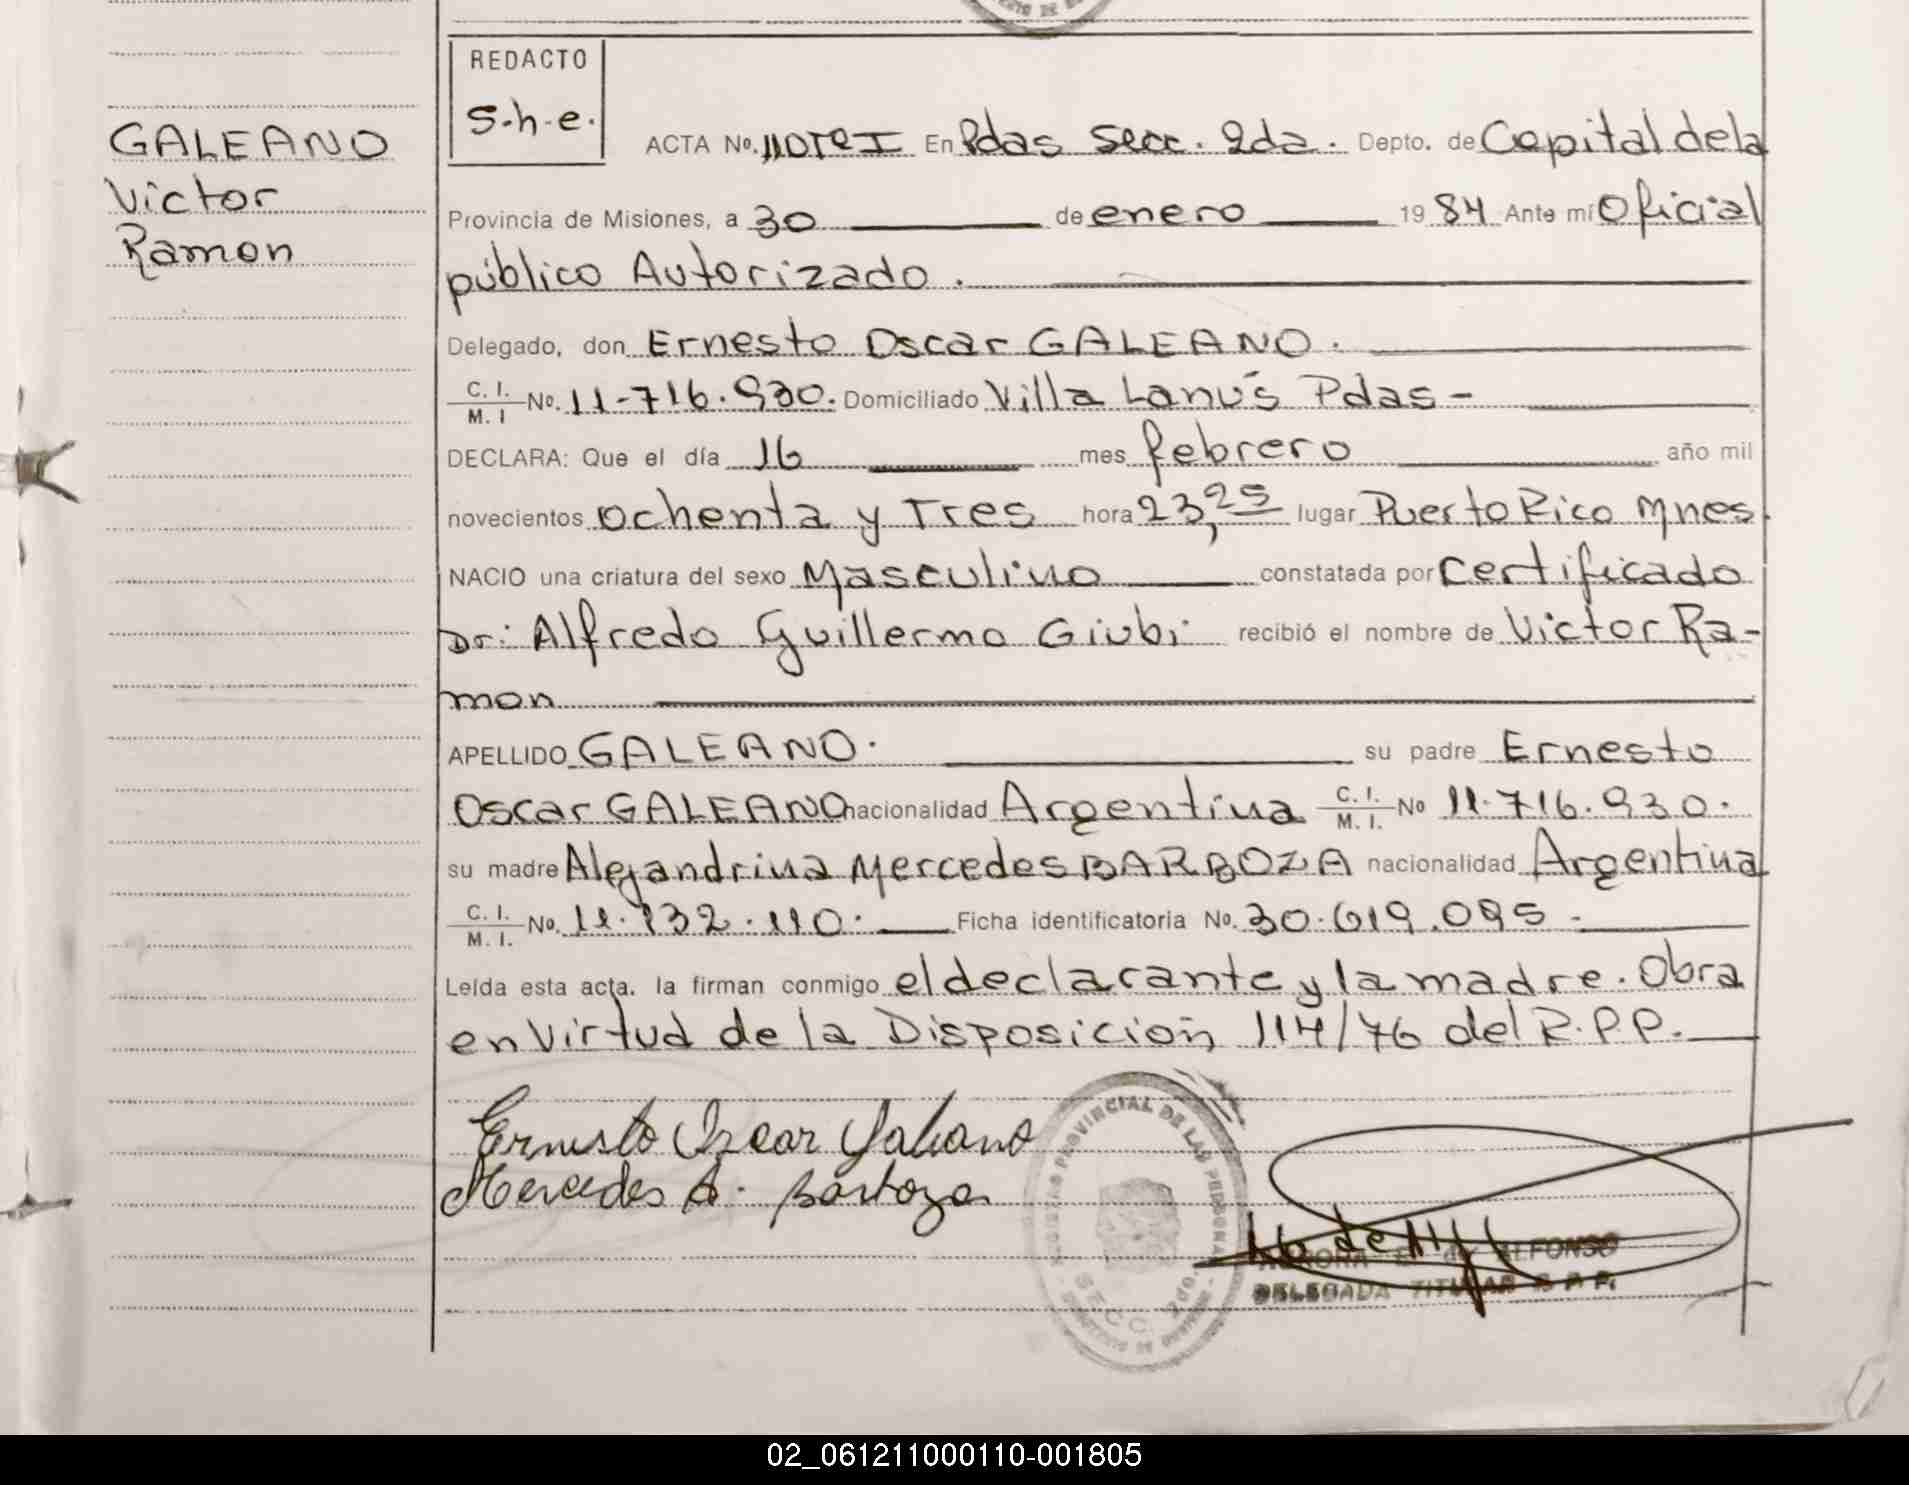 REDACTO
S.h.e.
GALEANO
Victor
Ramon
ACTA No. 110 Tº I En Pdas Secc. 2da. Depto. de Capital de la
Provincia de Misiones, a 30 de enero 1984 Ante mí Oficial
público Autorizado.
Delegado, don Ernesto Oscar GALEANO.
C. I. M. I No. 11-716.930. Domiciliado Villa Lanús Pdas-
DECLARA: Que el día 16 mes febrero año mil
novecientos ochenta y Tres hora 23,25 lugar Puerto Rico Mnes.
NACIO una criatura del sexo Masculino constatada por Certificado
Dr: Alfredo Guillermo Giubi recibió el nombre de Victor Ra-
mon
APELLIDO GALEANO. su padre Ernesto
Oscar GALEANO nacionalidad Argentina C. I. M. I. No 11.716.930.
su madre Alejandrina Mercedes BARBOZA nacionalidad Argentina
C. I. M. I. No. 11.132.110. Ficha identificatoria No. 30.619.095.
Leída esta acta. la firman conmigo el declarante y la madre. Obra
en virtud de la Disposición 114/76 del R.P.P.
Ernesto Oscar Galeano
Mercedes A. Barboza
PROVINCIAL DE LAS PERSONAS
SECC. 2da.
ALFONSO
DELEGADA TITULAR
02_061211000110-001805